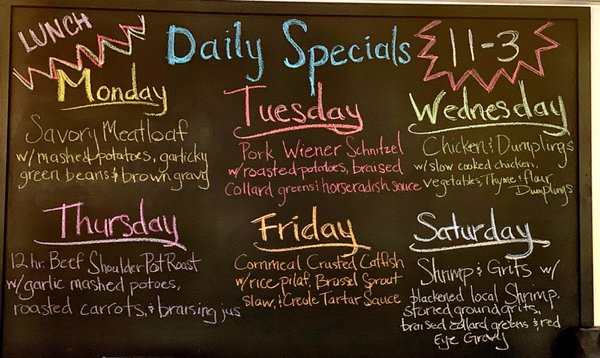 LUNCH
Daily Specials
11-3
Monday
Savory Meatloaf
w/mashed potatoes, garlicky
green beans & brown gravy
Tuesday
Pork Wiener Schnitzel
w/roasted potatoes, braised
Collard greens & horseradish sauce
Wednesday
Chicken & Dumplings
w/slow cooked chicken,
vegetables, Thyme & flour
Dumplings
Thursday
12 hr. Beef Shoulder Pot Roast
w/garlic mashed potatoes,
roasted carrots, & braising jus
Friday
Cornmeal Crusted Catfish
w/rice pilaf, Brussel Sprout
slaw, & Creole Tartar Sauce
Saturday
Shrimp & Grits w/
blackened local Shrimp,
stoned ground grits,
braised collard greens & red
Eye Gravy